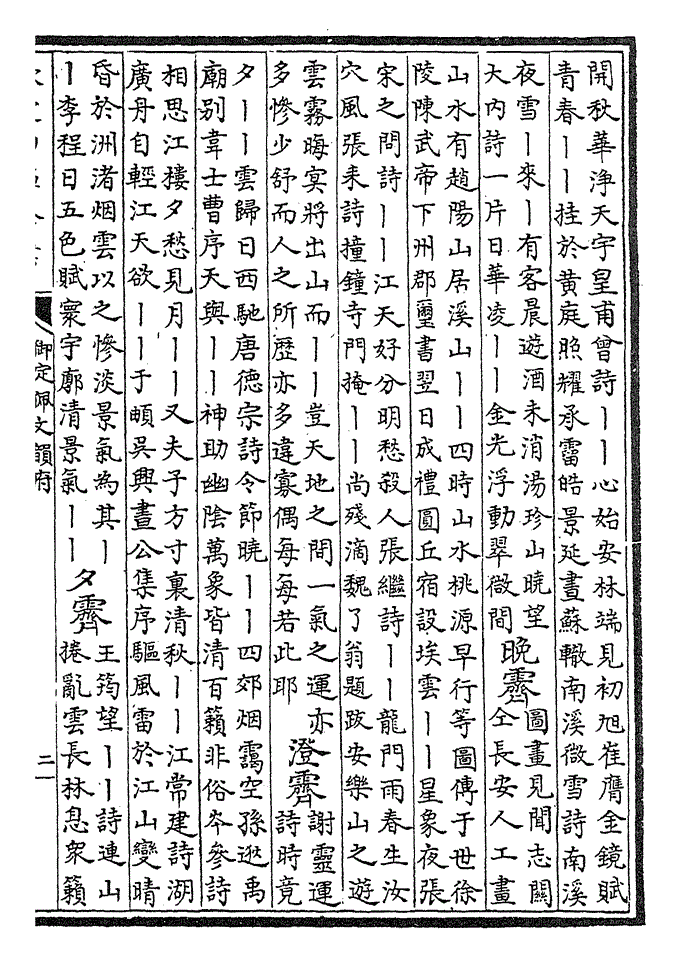 開秋華淨天宇皇甫曾詩丨丨心始安林端見初旭崔膺金鏡賦
青春丨丨挂於黃庭照耀承霤皓景延晝蘇轍南溪微雪詩南溪
夜雪丨來丨有客晨遊酒未消湯珍山曉望
大內詩一片日華凌丨丨金光浮動翠微間
晚霽
圖畫見聞志關
仝長安人工畫
山水有趙陽山居溪山丨丨四時山水桃源早行等圖傳于世徐
陵陳武帝下州郡璽書翌日成禮圓丘宿設埃雲丨丨星象夜張
宋之問詩丨丨江天好分明愁殺人張繼詩丨丨龍門雨春生汝
穴風張耒詩撞鐘寺門掩丨丨尚殘滴魏了翁題跋安樂山之遊
雲霧晦冥將出山而丨丨豈天地之間一氣之運亦
多慘少舒而人之所歷亦多違寡偶每每若此耶
澄霽
謝靈運
詩時竟
夕丨丨雲歸日西馳唐德宗詩令節曉丨丨四郊烟靄空孫逖禹
廟別韋士曹序天與丨丨神助幽陰萬象皆清百籟非俗岑參詩
相思江樓夕愁見月丨丨又夫子方寸裏清秋丨丨江常建詩湖
廣舟自輕江天欲丨丨于頔吳興晝公集序驅風雷於江山變晴
昏於洲渚烟雲以之慘淡景氣為其丨
丨李程日五色賦寰宇廓清景氣丨丨
夕霽
王筠望丨丨詩連山
捲亂雲長林息衆籟
御定佩文韻府